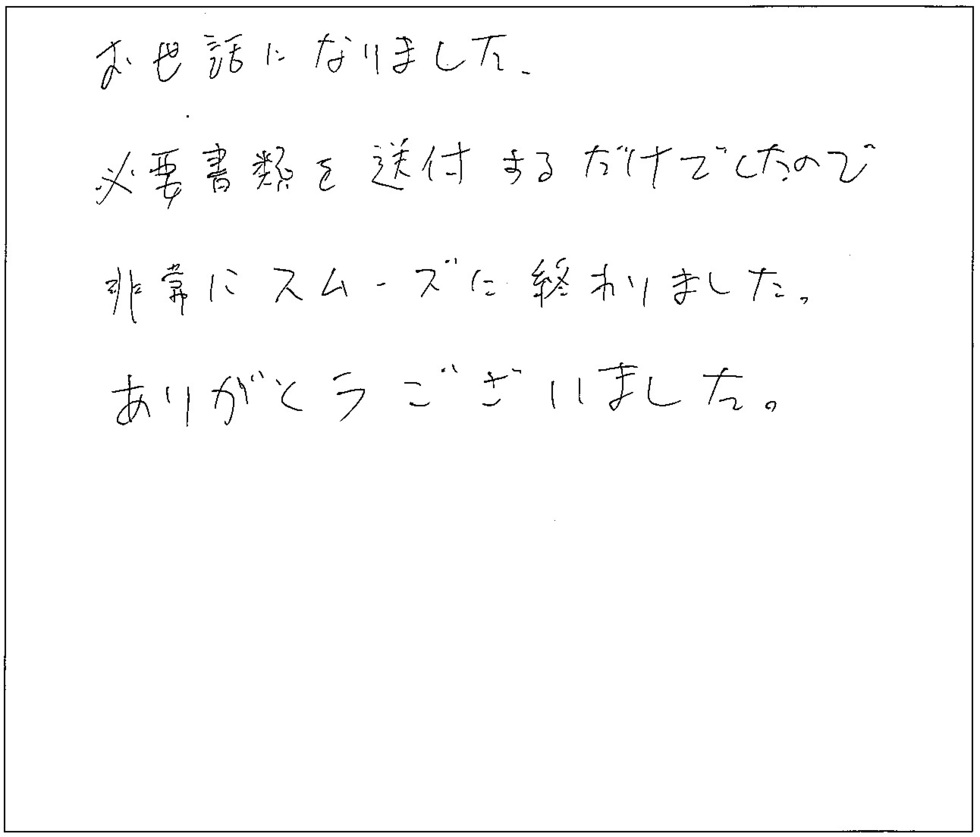 お世話になりました。
必要書類を送付するだけでしたので
非常にスムーズに終わりました。
ありがとうございました。